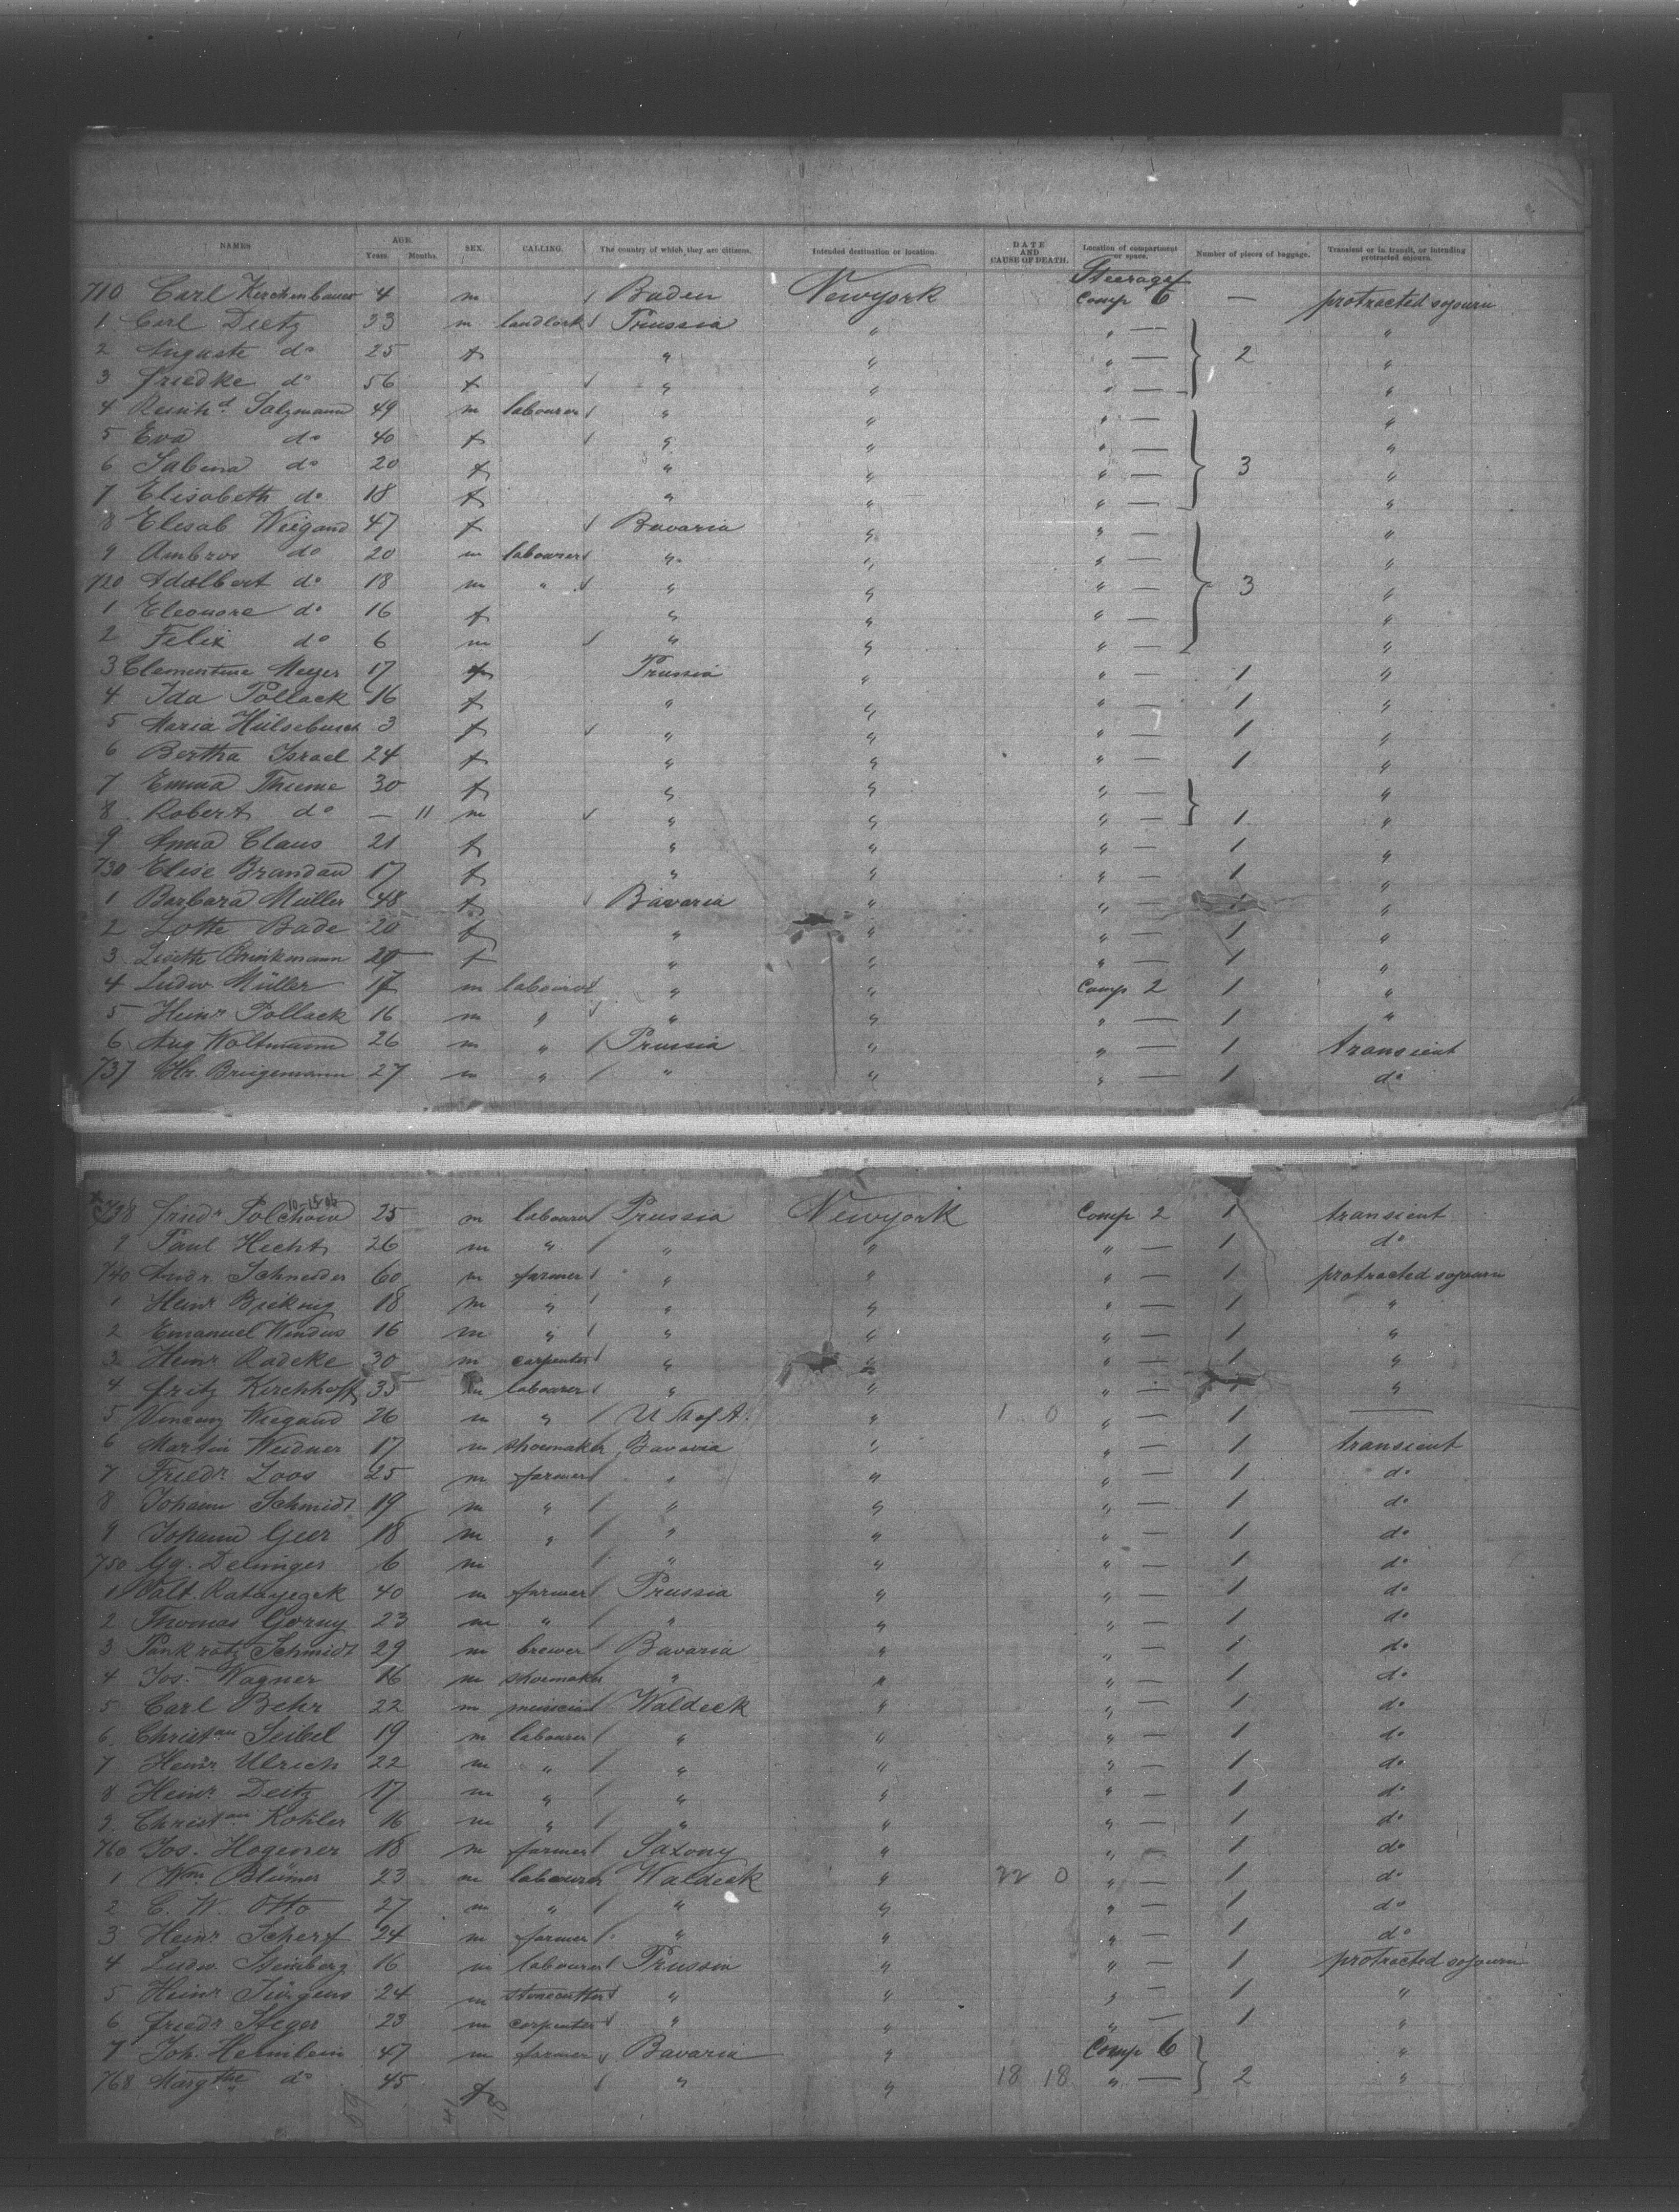 NAMES AGE. Years. Months. SEX. CALLING. The country of which they are citizens. Intended destination or location. DATE AND CAUSE OF DEATH. Location of compartment or space. Number of pieces of baggage. Transient or in transit, or intending protracted sojourn.
Steerage
710 Carl Kirchenbauer 4 m Baden Newyork Comp 6 — protracted sojourn
1 Carl Dietz 33 m Prussia " " — "
2 Auguste do 25 f " " " — 2 "
3 Friedke do 56 f " " " — "
4 Reinhd Salzmann 49 m labourer " " " — "
5 Eva do 40 f " " " — "
6 Sabina do 20 f " " " — 3 "
7 Elisabeth do 18 f " " " — "
8 Elisab Wiegand 47 f Bavaria " " — "
9 Ambros do 20 m labourer " " " — "
720 Adalbert do 18 m " " " " — 3 "
1 Eleonore do 16 f " " " — "
2 Felix do 6 m " " " — "
3 Clementine Meyer 17 f Prussia " " — 1 "
4 Ida Pollack 16 f " " " — 1 "
5 Maria Hülsebusch 3 f " " " — 1 "
6 Bertha Israel 24 f " " " — 1 "
7 Emma Thieme 30 f " " " — "
8 Robert do — 11 m " " " — 1 "
9 Anna Claus 21 f " " " — 1 "
730 Elise Brandau 17 f " " " — 1 "
1 Barbara Müller 48 f Bavaria " " — 1 "
2 Lotte Bade 20 f " " " — 1 "
3 Lisette Brinkmann 20 f " " " — 1 "
4 Ludw. Müller 17 m labourer " " Comp 2 1 "
5 Heinr Pollack 16 m " " " " — 1 "
6 Aug Woltmann 26 m " Prussia " " — 1 transient
737 Chr. Brügemann 27 m " " " " — 1 do
738 Friedr Polchow 25 m labourer Prussia Newyork Comp 2 1 transient
9 Paul Hecht 26 m " " " " — 1 do
740 Andr. Schneider 60 m farmer " " " — 1 protracted sojourn
1 Heinr 18 m " " " " — 1 "
2 Emanuel Windus 16 m " " " " — 1 "
3 Heinr Radeke 30 m carpenter " " " — 1 "
4 Fritz Kirchhoff 35 m labourer " " " — 1 "
5 Vincenz Wiegand 26 m " U St of A. " 1 0 " — 1 —
6 Martin Weidner 17 m shoemaker Bavaria " " — 1 transient
7 Friedr Loos 25 m farmer " " " — 1 do
8 Johann Schmidt 19 m " " " " — 1 do
9 Johann Geer 18 m " " " " — 1 do
750 Gg. Delinger 6 m " " " — 1 do
1 Valt. Ratayezek 40 m farmer Prussia " " — 1 do
2 Thomas Gorny 23 m " " " " — 1 do
3 Pankratz Schmidt 29 m brewer Bavaria " " — 1 do
4 Jos. Wagner 16 m shoemaker " " " — 1 do
5 Carl Behr 22 m musician Waldeck " " — 1 do
6 Christian Seibel 19 m labourer " " " — 1 do
7 Heinr Ulrich 22 m " " " " — 1 do
8 Heinr Deitz 17 m " " " " — 1 do
9 Christian Kohler 16 m " " " " — 1 do
760 Jos. Hogener 18 m farmer Saxony " " — 1 do
1 Wm Blümer 23 m labourer Waldeck " 22 0 " — 1 do
2 C. W. Otto 27 m " " " " — 1 do
3 Heinr Scherf 24 m farmer " " " — 1 do
4 Ludw. Steinberg 16 m labourer Prussia " " — 1 protracted sojourn
5 Heinr Jürgens 24 m stonecutter " " " — 1 "
6 Friedr Steger 23 m carpenter " " " — 1 "
7 Joh. Helmlein 47 m farmer Bavaria " Comp 6 "
768 Margthe do 45 f " " 18 18 " — 2 "
59 41 18